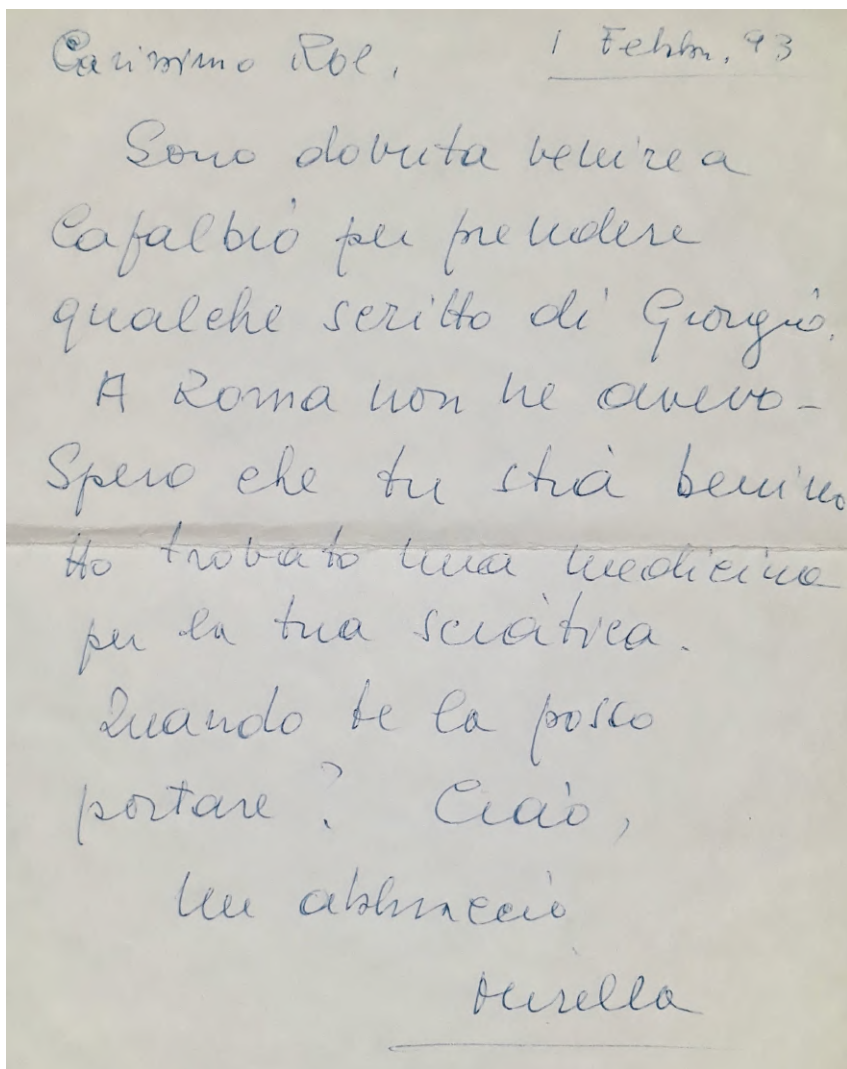 Carissimo Rol,
1 Febbr, 93
Sono dovuta venire a
Capalbio per prendere
qualche scritto di Giorgio.
A Roma non ne avevo -
Spero che tu stia benino
Ho trovato una medicina
per la tua sciatica.
Quando te la posso
portare? Ciao,
un abbraccio
Mirella